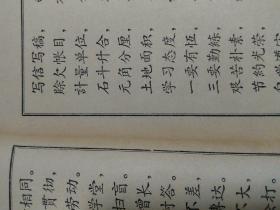 写信写稿，
赊欠帐目，
计量单位，
石斗升合，
元角分厘，
土地面积，
学习态度，
一要有恒，
三要勤练，
艰苦朴素，
节约光荣，
相同。
贯彻，
劳动。
学堂，
扫盲。
增长，
对答。
差，
达。
大，
打。